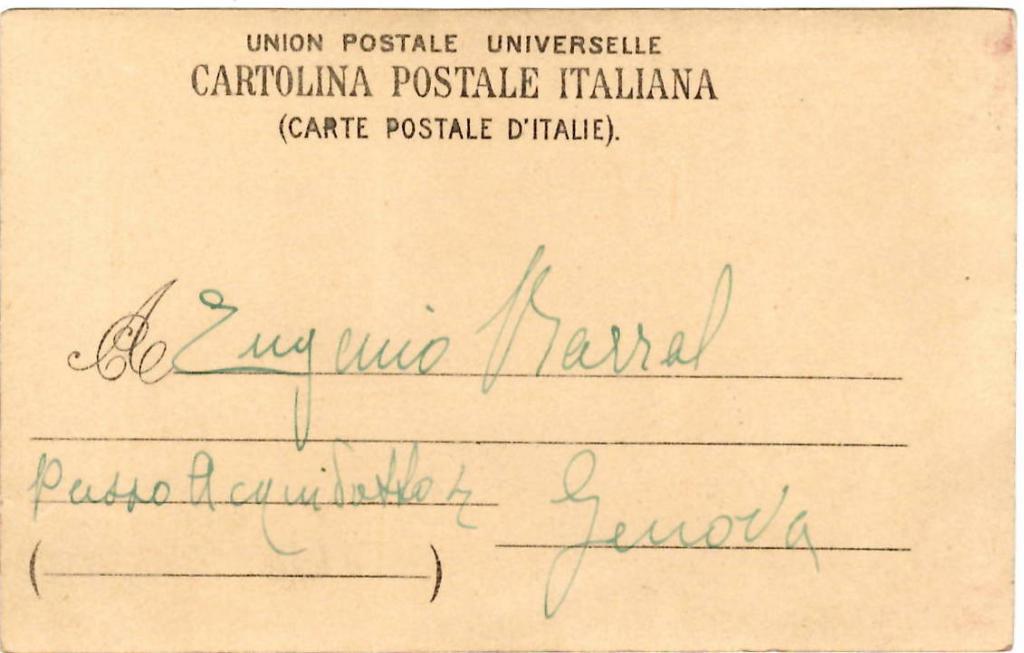 UNION POSTALE UNIVERSELLE
CARTOLINA POSTALE ITALIANA
(CARTE POSTALE D'ITALIE).
A Eugenio Barral
Passo Acquidotto
Genova